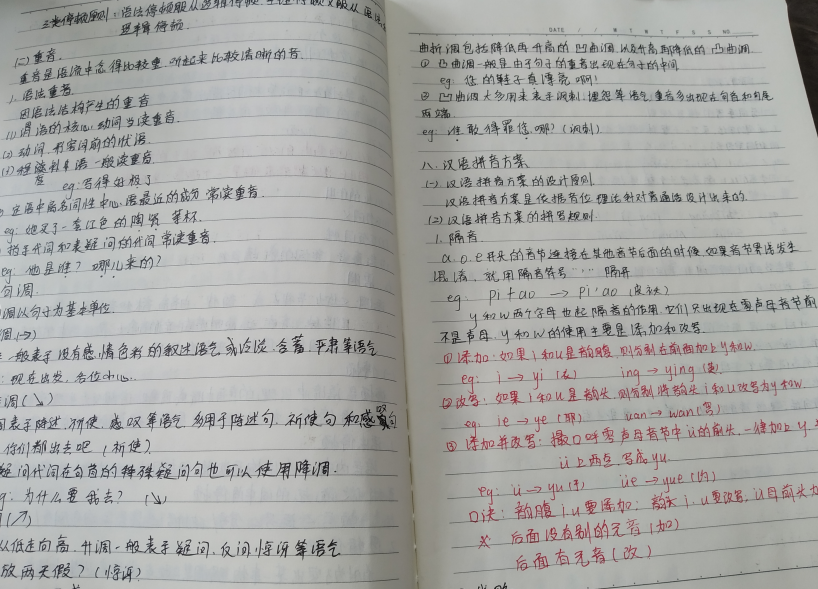 三类停顿原则：语法停顿服从逻辑停顿
逻辑停顿
(二)重音
重音是语流中念得比较重，听起来比较清晰的音.
1. 语法重音
因语法结构产生的重音
(1)谓语的核心，动词当读重音.
(2)动词，形容词前的状语.
一般读重音
eg：写得好极了
定语中离名词性中心语最近的成分 常读重音.
eg：她买了一套红色的陶瓷茶杯.
指示代词和表疑问的代词 常读重音.
eg：他是谁？哪儿来的？
句调.
调以句子为基本单位.
调(→)
一般表示没有感情色彩的叙述语气 或冷淡、含蓄、严肃等语气
：现在出发，各位小心.
调(↘)
表示陈述、祈使、感叹等语气，多用于陈述句、祈使句和感叹句
你们都出去吧(祈使).
疑问代词在句首的特殊疑问句也可以使用降调.
：为什么要我去？(↘)
(↗)
从低走向高，升调一般表示疑问、反问惊讶等语气
放两天假？(惊讶)
DATE / / M T W T F S S NO.
曲折调包括降低再升高的凹曲调，以及升高再降低的凸曲调.
① 凸曲调一般是由于句子的重音出现在句子的中间
eg：您的鞋子真漂亮啊！
② 凹曲调大多用来表示讽刺、埋怨等语气，重音多出现在句首和句尾
两端
eg：谁敢得罪您哪？(讽刺)
八. 汉语拼音方案
(一) 汉语拼音方案的设计原则
汉语拼音方案是依据音位理论针对普通话设计出来的
(2)汉语拼音方案的拼写规则
1. 隔音
a、o、e开头的音节连接在其他音节后面的时候，如果音节界限发生
混淆，就用隔音符号“'”隔开
eg：pi+ao → pi'ao (皮袄)
y和w两个字母也起隔音的作用，它们只出现在零声母音节前
不是声母. y和w的使用主要是添加和改写.
① 添加：如果i和u是韵腹，则分别在前面加上y和w.
eg：i → yi (衣) ing → ying (英)
② 改写：如果i和u是韵头，则分别将韵头i和u改写为y和w
eg：ie → ye (耶) uan → wan (弯)
③ 添加并改写：撮口呼零声母音节中ü的前头，一律加上y，
ü上两点，写成yu.
eg：ü → yu üe → yue (约)
口诀：韵腹i、u要添加；韵头i、u要改写，ü母前头
※ 后面没有别的元音(加)
后面有元音(改)